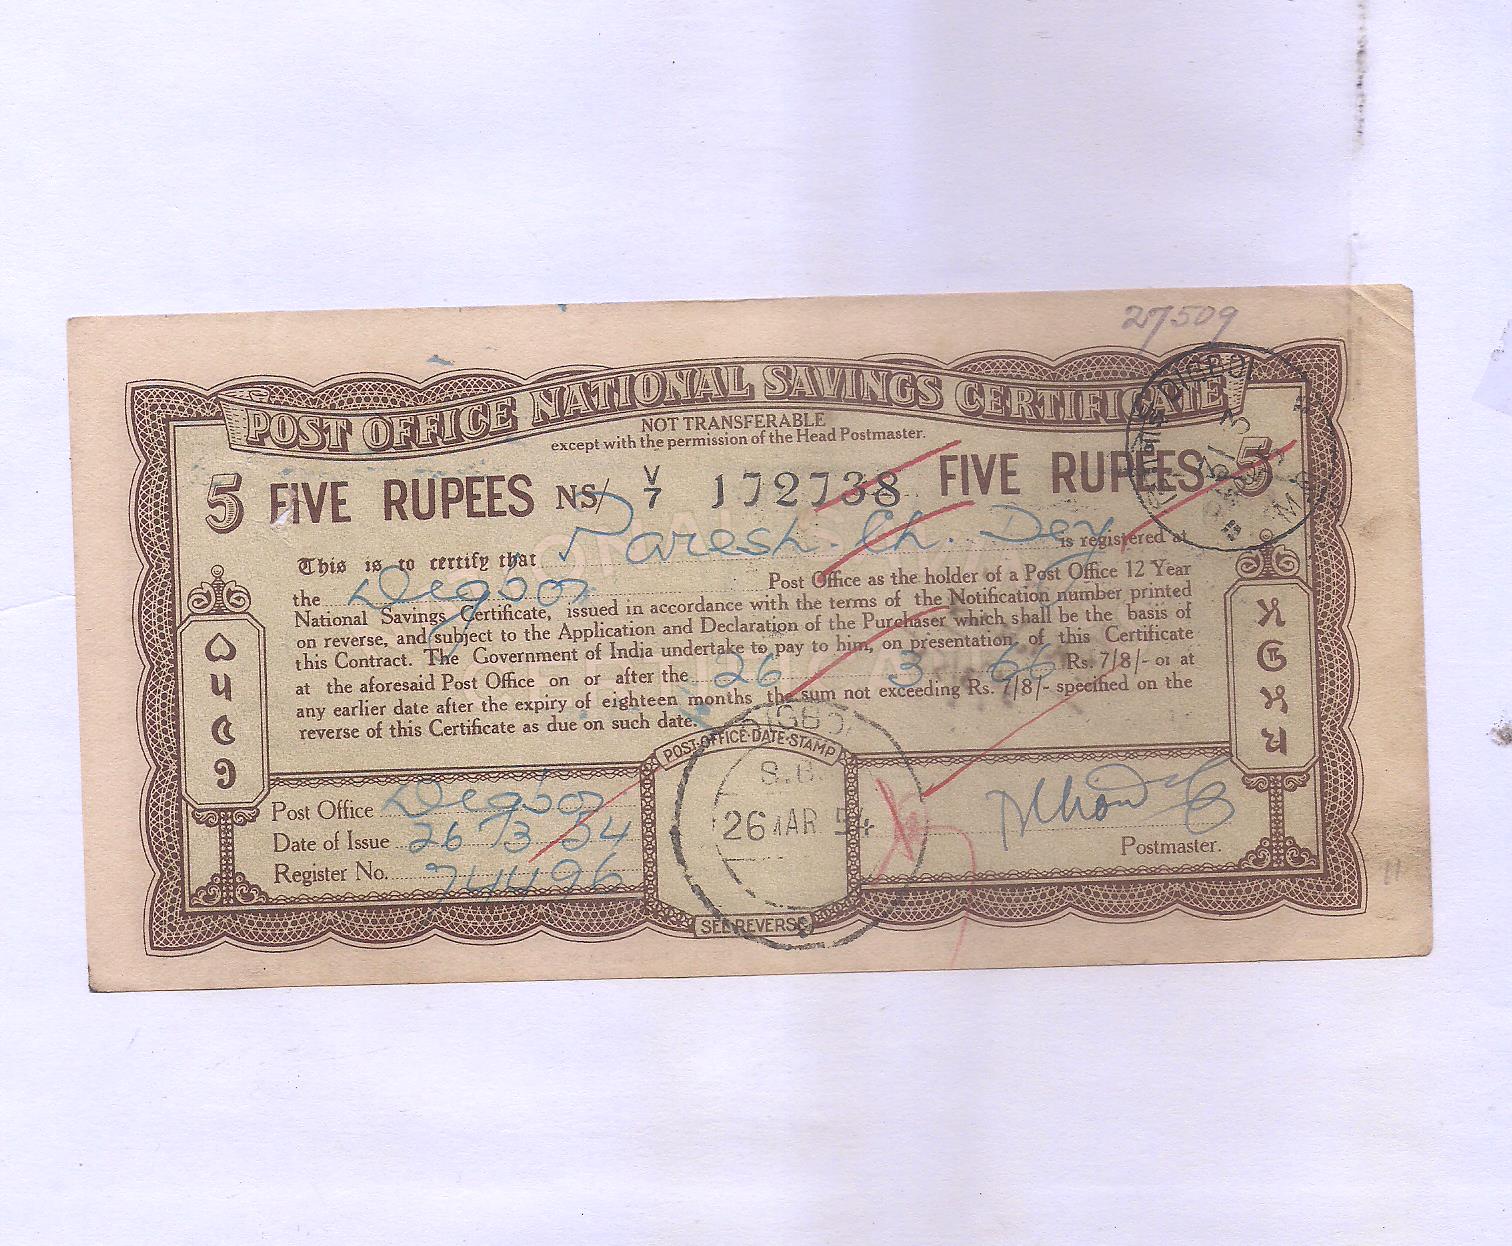 27509
POST OFFICE NATIONAL SAVINGS CERTIFICATE
NOT TRANSFERABLE
except with the permission of the Head Postmaster.
5 FIVE RUPEES NS/ V/7 172738 FIVE RUPEES 5
This is to certify that Paresh Ch. Dey is registered at
the Digboi Post Office as the holder of a Post Office 12 Year
National Savings Certificate, issued in accordance with the terms of the Notification number printed
on reverse, and subject to the Application and Declaration of the Purchaser which shall be the basis of
this Contract. The Government of India undertake to pay to him, on presentation of this Certificate
at the aforesaid Post Office on or after the 26 3 66 Rs. 7/8/- or at
any earlier date after the expiry of eighteen months the sum not exceeding Rs. 7/8/- specified on the
reverse of this Certificate as due on such date.
POST OFFICE DATE STAMP
DIGBOI
S.B.
26 MAR 54
Post Office Digboi
Date of Issue 26/3/54
Register No. 74496
Postmaster.
SEE REVERSE
DIGBOI